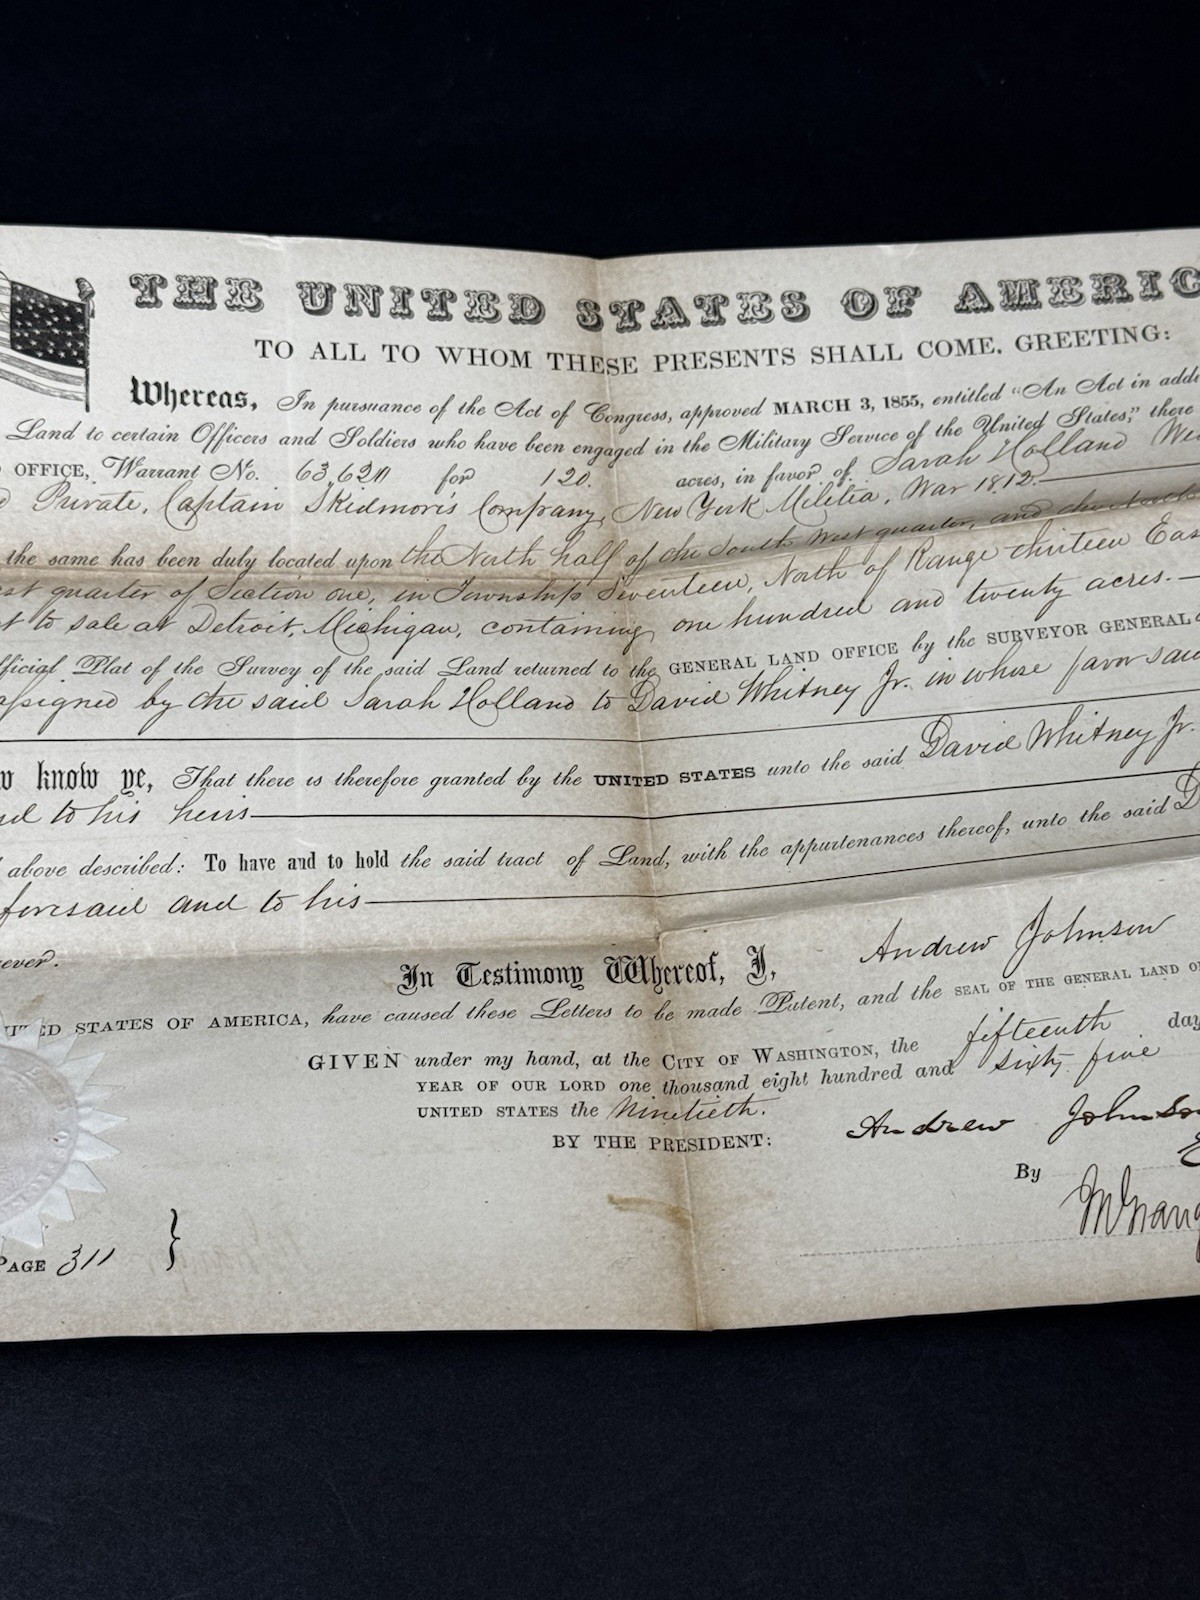 THE UNITED STATES OF AMERIC
TO ALL TO WHOM THESE PRESENTS SHALL COME, GREETING:
Whereas, In pursuance of the Act of Congress, approved MARCH 3, 1855, entitled "An Act in add
Land to certain Officers and Soldiers who have been engaged in the Military Service of the United States," there
OFFICE, Warrant No. 63,620 for 120. acres, in favor of Sarah Holland
Private, Captain Skidmore's Company, New York Militia, War 1812.
the same has been duly located upon the North half of the South West quarter, and the
st quarter of Section one, in Township Seventeen, North of Range thirteen Eas
t to sale at Detroit, Michigan, containing one hundred and twenty acres.
fficial Plat of the Survey of the said Land returned to the GENERAL LAND OFFICE by the SURVEYOR GENERAL
assigned by the said Sarah Holland to David Whitney Jr. in whose favor said
w know ye, That there is therefore granted by the UNITED STATES unto the said David Whitney Jr.
nd to his heirs
above described: To have and to hold the said tract of Land, with the appurtenances thereof, unto the said D
foresaid and to his
ever.
In Testimony Whereof, I, Andrew Johnson
ITED STATES OF AMERICA, have caused these Letters to be made Patent, and the SEAL OF THE GENERAL LAND O
GIVEN under my hand, at the CITY OF WASHINGTON, the fifteenth day
YEAR OF OUR LORD one thousand eight hundred and sixty five
UNITED STATES the Ninetieth.
BY THE PRESIDENT: Andrew Johnso
By
PAGE 311